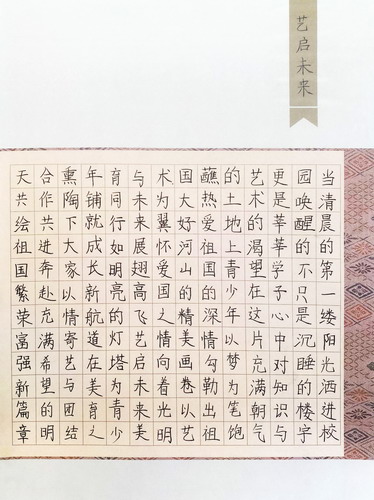 艺启未来
当清晨的第一缕阳光洒进校
园唤醒的不只是沉睡的楼宇
更是莘莘学子心中对知识与
艺术的渴望在这片充满朝气
的土地上青少年以梦为笔饱
蘸热爱祖国的深情勾勒出祖
国大好河山的精美画卷以艺
术为翼怀爱国之情向着光明
与未来展翅高飞艺启未来美
育同行如明亮的灯塔为青少
年铺就成长新航道在美育之
熏陶下大家以情寄艺与团结
合作共进奔赴充满希望的明
天共绘祖国繁荣富强新篇章